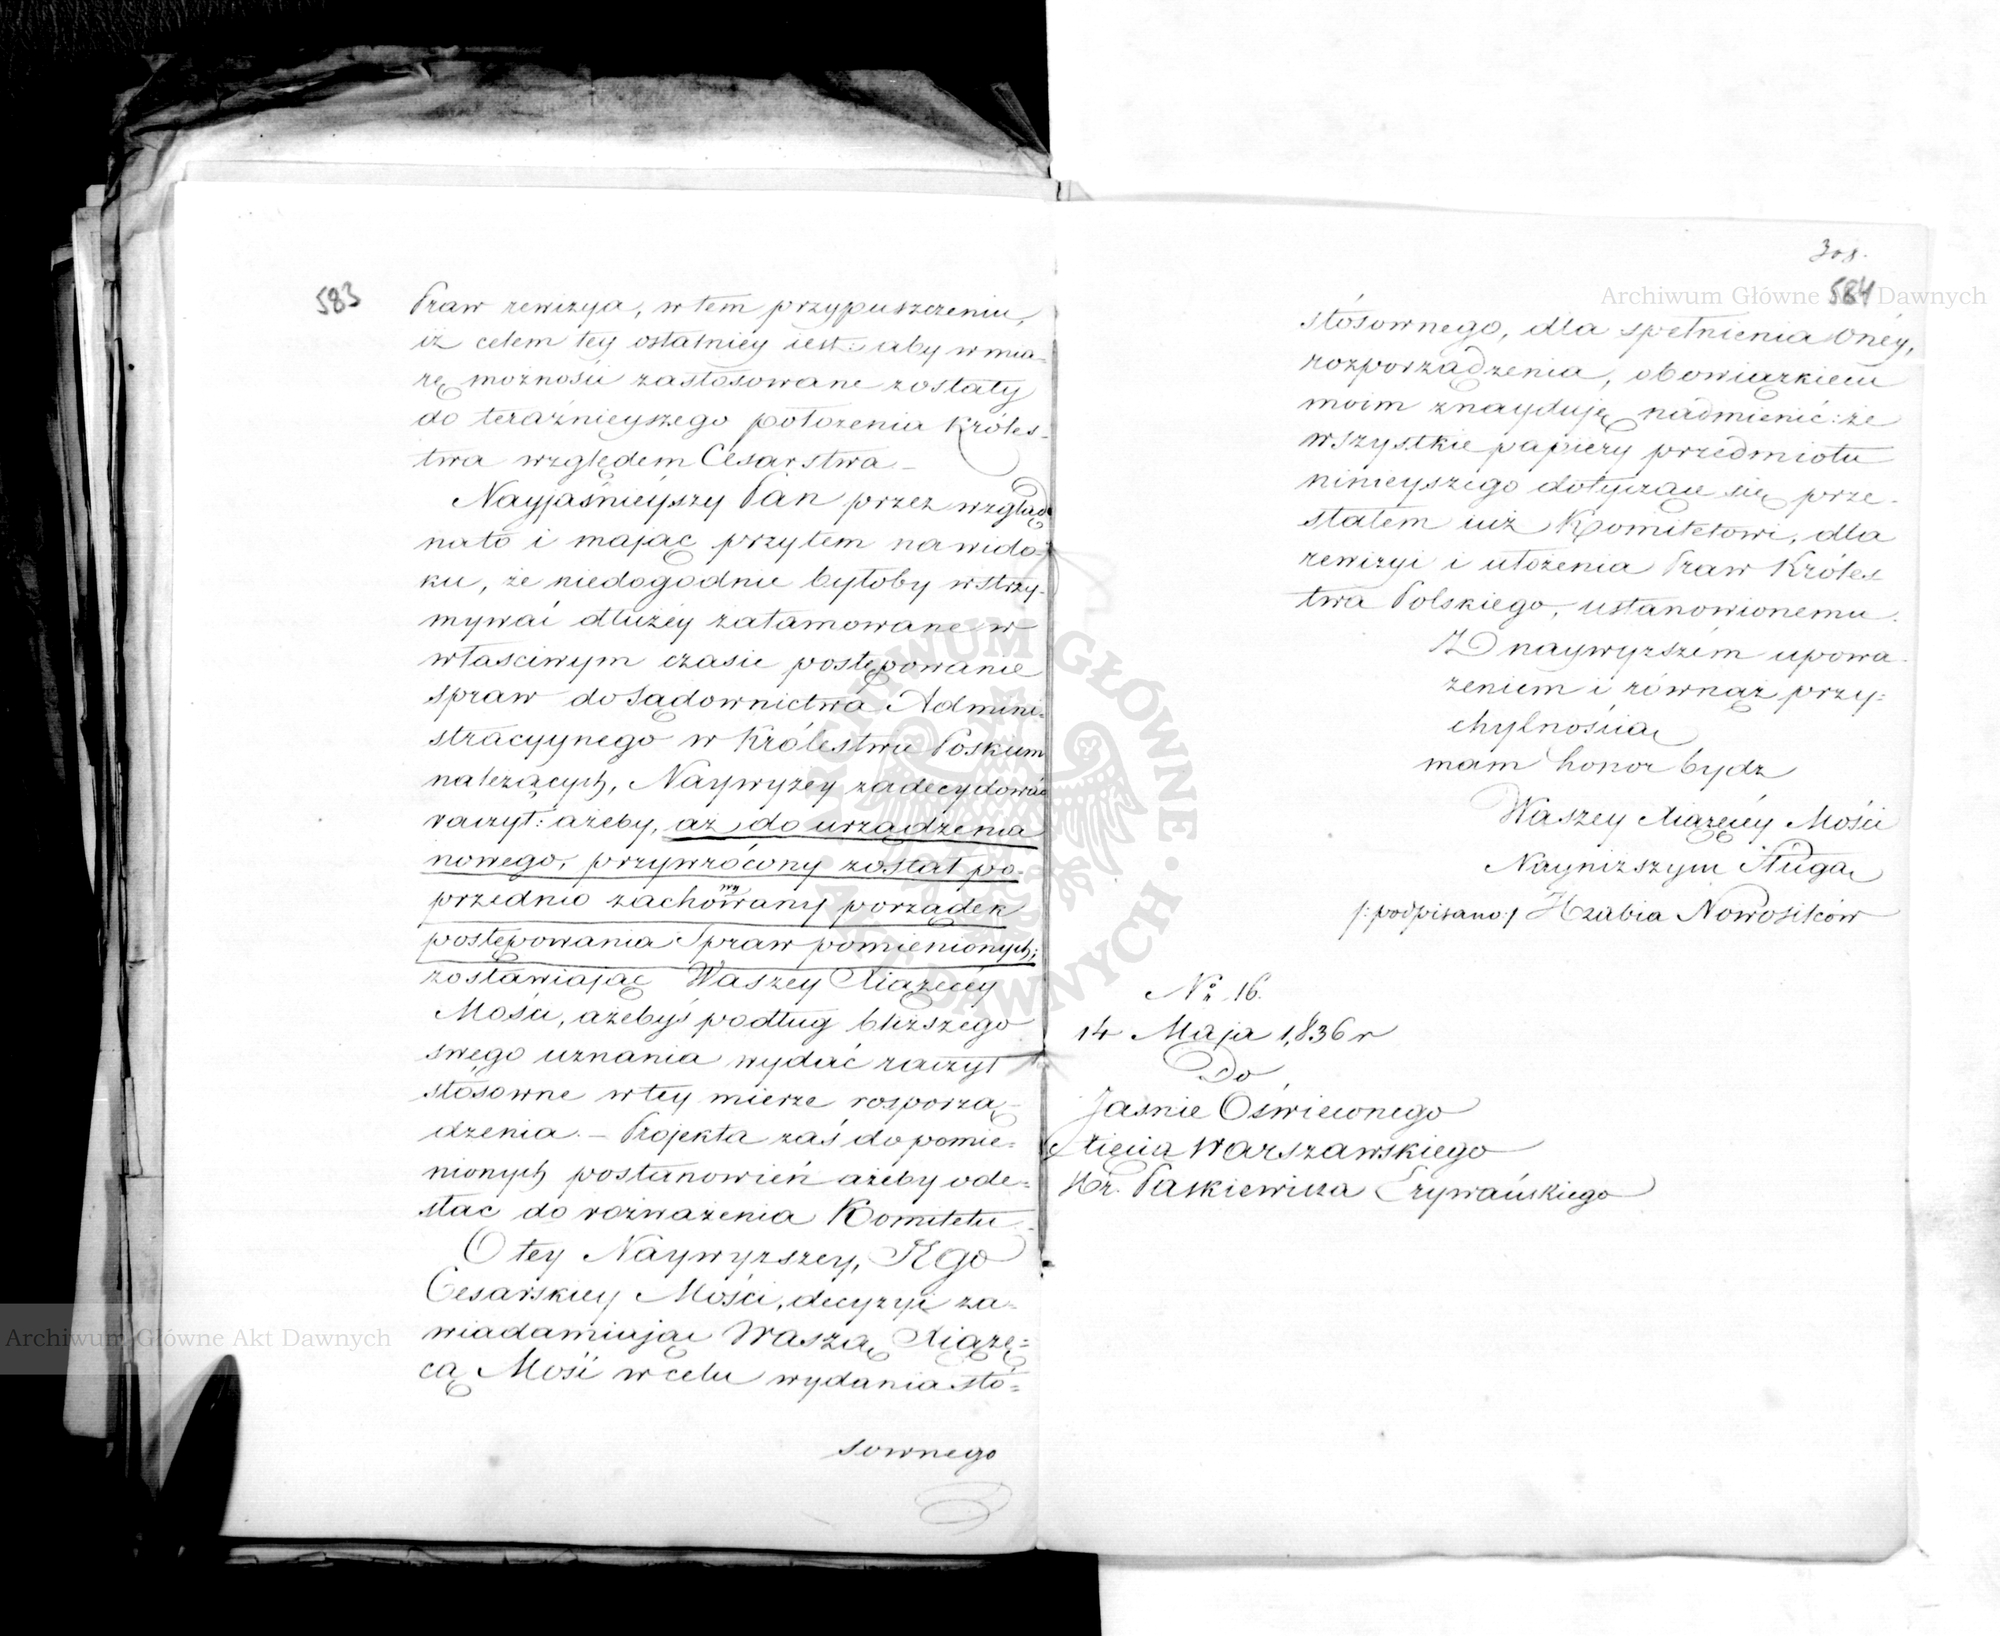 583
Praw rewizya, w tem przypuszczeniu,
iż celem tey ostatniey iest: aby w mia-
rę możności zastosowane zostały
do teraźnieyszego położenia Króles-
twa względem Cesarstwa –
Nayjaśnieyszy Pan przez wzgląd
na to i mając przytem na wido-
ku, że niedogodnie byłoby wstrzy-
mywać dłużey zatamowane w
właściwym czasie postępowanie
spraw do Sądownictwa Admini-
stracyynego w Królestwie Poskiem
należących, Naywyżey zadecydować
raczył: ażeby, aż do urządzenia
nowego, przywrócony został po-
przednio zachowywany porządek
postępowania Spraw pomienionych;
zostawiając Waszey Xiążęcéy
Mości, ażebyś podług bliższego
swego uznania wydać raczył
stósowne w tey mierze rosporzą-
dzenia. – Projekta zaś do pomie-
nionych postanowień ażeby ode-
słac do rozważenia Komitetu.
O tey Naywyższey, JEgo
Cesarskiey Mości, decyzyi za-
wiadamiając Waszą Xiążę=
cą Mość w celu wydania stó=
sownego
308.
584
stósownego, dla spełnienia onéy,
rozporządzenia, obowiązkiem
moim znayduję nadmienić: że
wszystkie papiery przedmiotu
ninieyszego dotyczące się prze-
słałem iuż Komitetowi, dla
rewizyi i ułożenia Praw Króles
twa Polskiego, ustanowionemu.
Z naywyższém upowa-
żeniem i równąż przy=
chylnością
mam honor bydz
Waszey Xiążęcéy Mości
Nayniższym Sługą
/:podpisano:/ Hrabia Nowosilców
No. 16.
14 Maja 1,836 r
Do
Jaśnie Oświeconego
Xięcia Warszawskiego
Hr. Paskiewicza Erywańskiego
Archiwum Główne Akt Dawnych
Archiwum Główne Akt Dawnych
ARCHIWUM GŁÓWNE AKT DAWNYCH